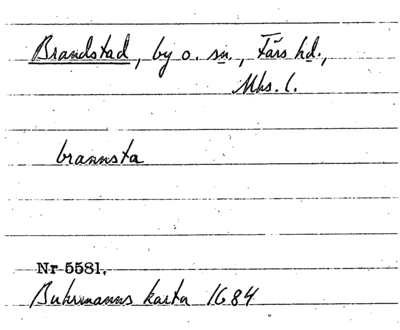 Brandstad, by o. sn., Färs hd.,
Mhs. l.
brannsta
Nr 5581.
Buhrmanns karta 1684